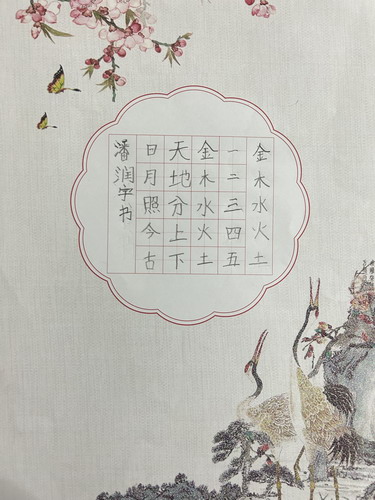 金木水火土
一二三四五
金木水火土
天地分上下
日月照今古
潘润宇书